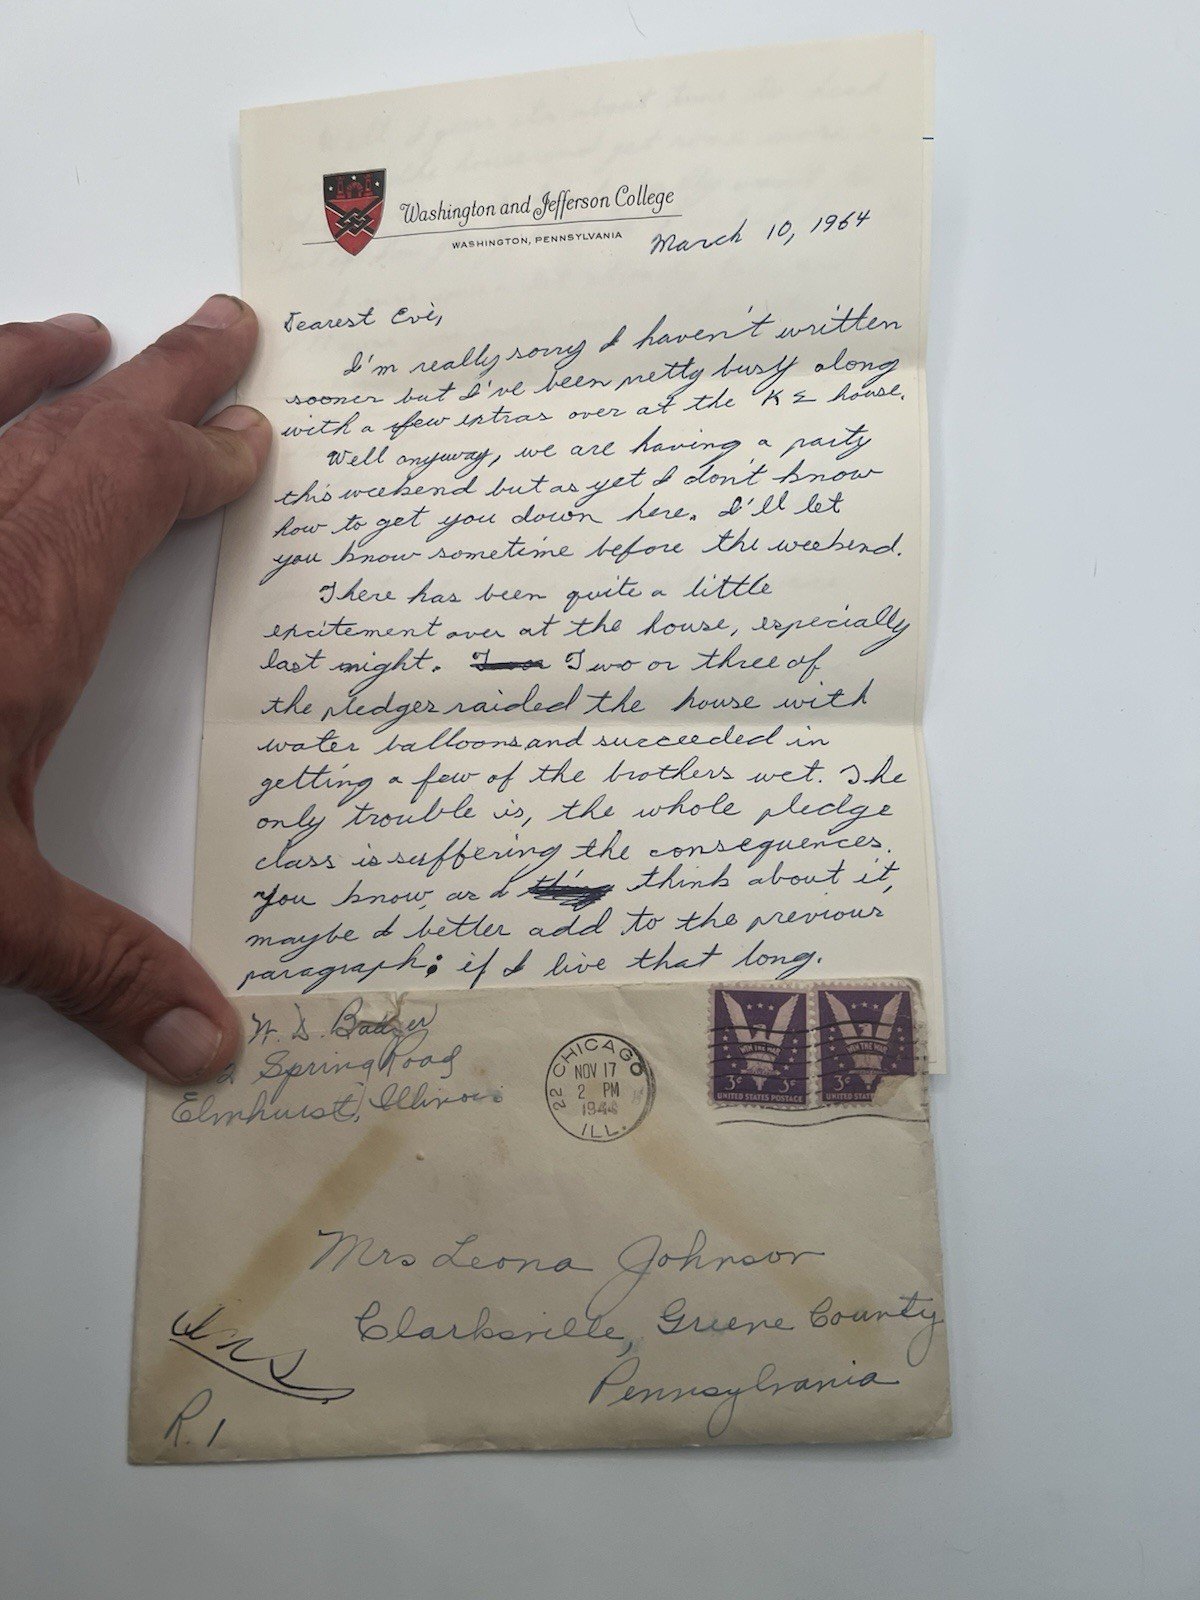 Washington and Jefferson College
WASHINGTON, PENNSYLVANIA
March 10, 1964
Dearest Evi,
I'm really sorry I haven't written
sooner but I've been pretty busy along
with a few extras over at the K Σ house.
Well anyway, we are having a party
this weekend but as yet I don't know
how to get you down here. I'll let
you know sometime before the weekend.
There has been quite a little
excitement over at the house, especially
last night. Two or three of
the pledges raided the house with
water balloons and succeeded in
getting a few of the brothers wet. The
only trouble is, the whole pledge
class is suffering the consequences.
You know, as I think about it,
maybe I better add to the previous
paragraph; if I live that long.
W. D.
Spring Road
Elmhurst, Illinois
22 CHICAGO
NOV 17
2 PM
1944
ILL.
WIN THE WAR
3¢ 3¢
UNITED STATES POSTAGE
WIN THE WAR
3¢
UNITED STAT
Mrs Leona Johnson
Clarksville, Greene County
Pennsylvania
R. 1